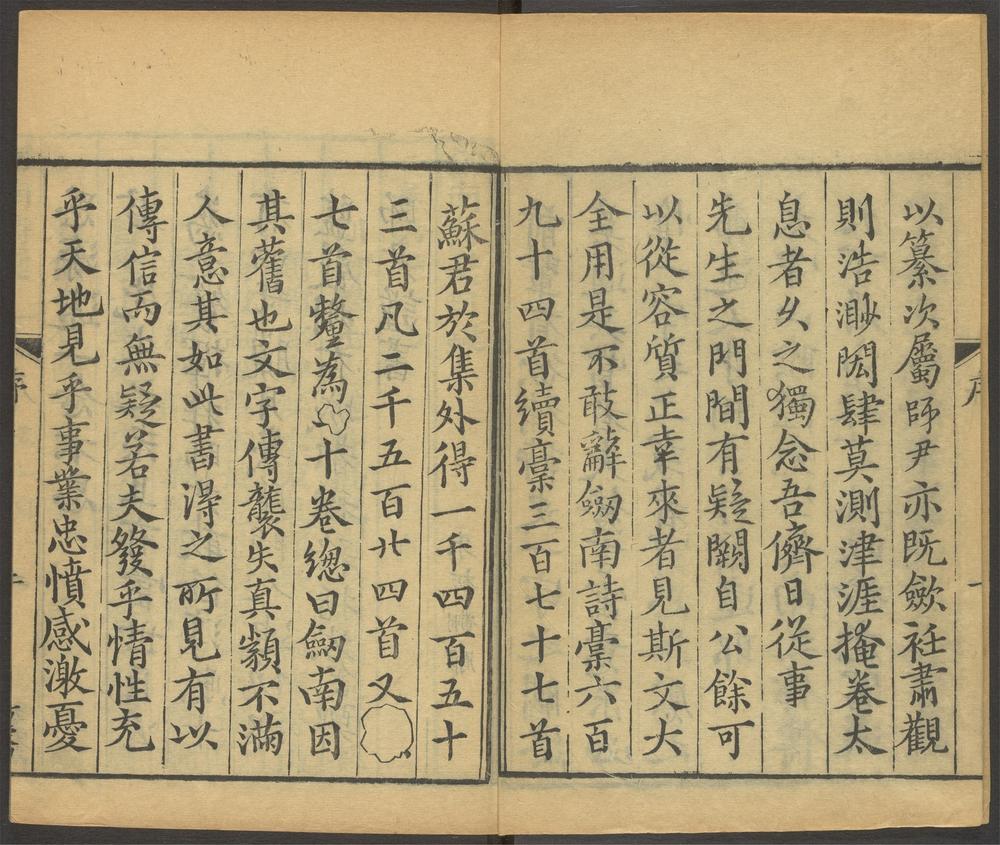 以纂次屬師尹亦既歛衽肅觀
則浩渺閎肆莫測津涯掩卷太
息者久之獨念吾儕日從事
先生之門間有疑闕自公餘可
以從容質正幸來者見斯文大
全用是不敢辭劒南詩稾六百
九十四首續稾三百七十七首
蘇君於集外得一千四百五十
三首凡二千五百廿四首又
七首釐為十卷總曰劒南因
其舊也文字傳襲失真纇不滿
人意其如此書得之所見有以
傳信而無疑若夫發乎情性充
乎天地見乎事業忠憤感激憂
序